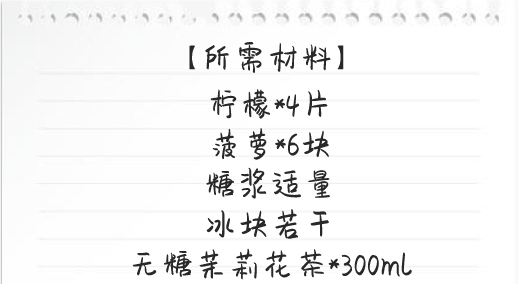 【所需材料】
柠檬*4片
菠萝*6块
糖浆适量
冰块若干
无糖茉莉花茶*300ml